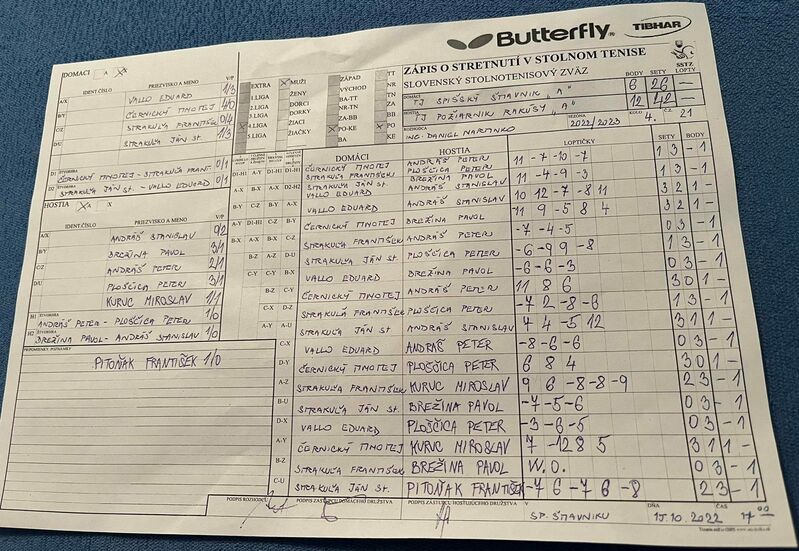 Butterfly®
TIBHAR
SSTZ
ZÁPIS O STRETNUTÍ V STOLNOM TENISE
SLOVENSKÝ STOLNOTENISOVÝ ZVÄZ
BODY SETY LOPTY
DOMÁCI TJ SPIŠSKÝ ŠTIAVNIK "A" 6 26
HOSTIA TJ POŽIARNIK RAKÚSY "A" 12 42
SEZÓNA 2022/2023 KOLO 4. Č. 21
ROZHODCA ING. DANIEL
EXTRA MUŽI ZÁPAD TT
1.LIGA ŽENY VÝCHOD NR
2.LIGA DORCI BA-TT TN
3.LIGA DORKY NR-TN ZA
4.LIGA ŽIACI ZA-BB BB
5.LIGA ŽIAČKY PO-KE PO
BA KE
DOMÁCI A X
IDENT.ČÍSLO PRIEZVISKO A MENO V/P
A/X VALLO EDUARD 1/3
B/Y ČERNICKÝ TIMOTEJ 4/0
C/Z STRAKUĽA FRANTIŠEK 0/4
D/U STRAKUĽA JÁN ST. 1/3
D1 ŠTVORHRA ČERNICKÝ TIMOTEJ - STRAKUĽA FRANT. 0/1
D2 ŠTVORHRA STRAKUĽA JÁN ST. - VALLO EDUARD 0/1
HOSTIA A X
IDENT.ČÍSLO PRIEZVISKO A MENO V/P
A/X ANDRÁŠ STANISLAV
B/Y BREŽINA PAVOL 3/1
C/Z ANDRÁŠ PETER 2/1
D/U PLOŠČICA PETER 3/1
KURUC MIROSLAV 1/1
H1 ŠTVORHRA ANDRÁŠ PETER - PLOŠČICA PETER 1/0
H2 ŠTVORHRA BREŽINA PAVOL - ANDRÁŠ STANISLAV 1/0
PRIPOMIENKY, POZNÁMKY
PITOŇAK FRANTIŠEK 1/0
DOMÁCI HOSTIA LOPTIČKY SETY BODY
ČERNICKÝ TIMOTEJ STRAKUĽA FRANTIŠEK ANDRÁŠ PETER PLOŠČICA PETER 11 -7 -10 -7 1 3 - 1
STRAKUĽA JÁN ST. VALLO EDUARD BREŽINA PAVOL ANDRÁŠ STANISLAV 11 -4 -9 -3 1 3 - 1
VALLO EDUARD ANDRÁŠ STANISLAV 10 12 -7 -8 11 3 2 1 -
ČERNICKÝ TIMOTEJ BREŽINA PAVOL 11 9 -5 8 4 3 2 1 -
STRAKUĽA FRANTIŠEK ANDRÁŠ PETER -7 -4 -5 0 3 - 1
STRAKUĽA JÁN ST. PLOŠČICA PETER -6 -9 9 -8 1 3 - 1
VALLO EDUARD BREŽINA PAVOL -6 -6 -3 0 3 - 1
ČERNICKÝ TIMOTEJ ANDRÁŠ STANISLAV 11 8 6 3 0 1 -
STRAKUĽA FRANTIŠEK PLOŠČICA PETER -7 2 -8 -6 1 3 - 1
STRAKUĽA JÁN ST. ANDRÁŠ STANISLAV 7 4 -5 12 3 1 1 -
VALLO EDUARD ANDRÁŠ PETER -8 -6 -6 0 3 - 1
ČERNICKÝ TIMOTEJ PLOŠČICA PETER 6 8 4 3 0 1 -
STRAKUĽA FRANTIŠEK KURUC MIROSLAV 9 6 -8 -8 -9 2 3 - 1
STRAKUĽA JÁN ST. BREŽINA PAVOL -7 -5 -6 0 3 - 1
VALLO EDUARD PLOŠČICA PETER -3 -6 -5 0 3 - 1
ČERNICKÝ TIMOTEJ KURUC MIROSLAV 7 -12 8 5 3 1 1 -
STRAKUĽA FRANTIŠEK BREŽINA PAVOL W.O. 0 3 - 1
STRAKUĽA JÁN ST. PITOŇAK FRANTIŠEK -7 6 -7 6 -8 2 3 - 1
PODPIS ROZHODCU PODPIS ZÁSTUPCU DOMÁCEHO DRUŽSTVA PODPIS ZÁSTUPCU HOSŤUJÚCEHO DRUŽSTVA V SP. ŠTIAVNIKU DŇA 15.10.2022 ČAS 17 00